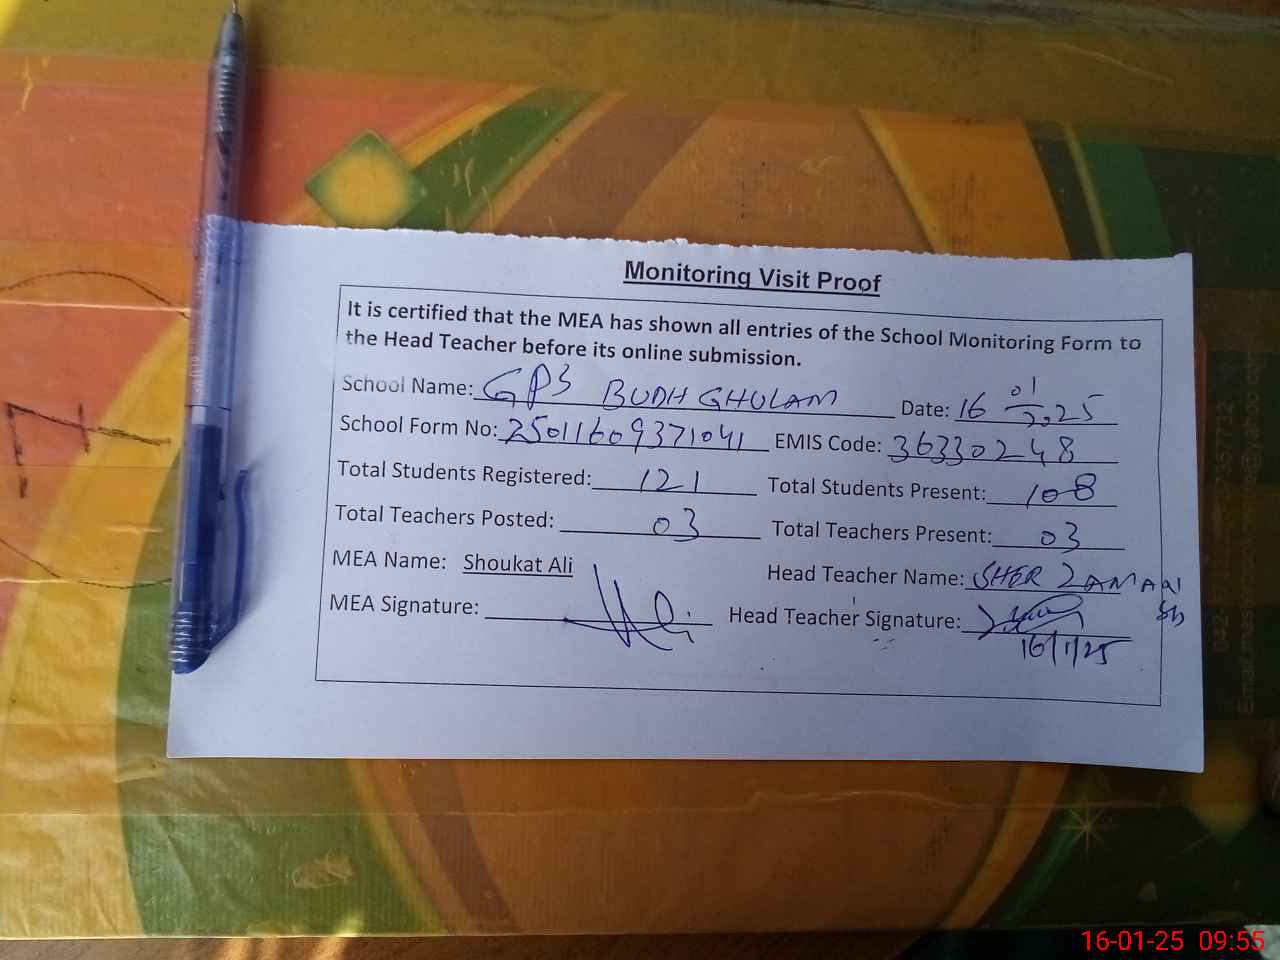 Monitoring Visit Proof
It is certified that the MEA has shown all entries of the School Monitoring Form to
the Head Teacher before its online submission.
School Name: GPS BUDH GHULAM Date: 16 01 2025
School Form No: 25011609371041 EMIS Code: 36330248
Total Students Registered: 121 Total Students Present: 108
Total Teachers Posted: 03 Total Teachers Present: 03
MEA Name: Shoukat Ali Head Teacher Name: SHER ZAMAN
MEA Signature: Head Teacher Signature:
16/1/25
16-01-25 09:55